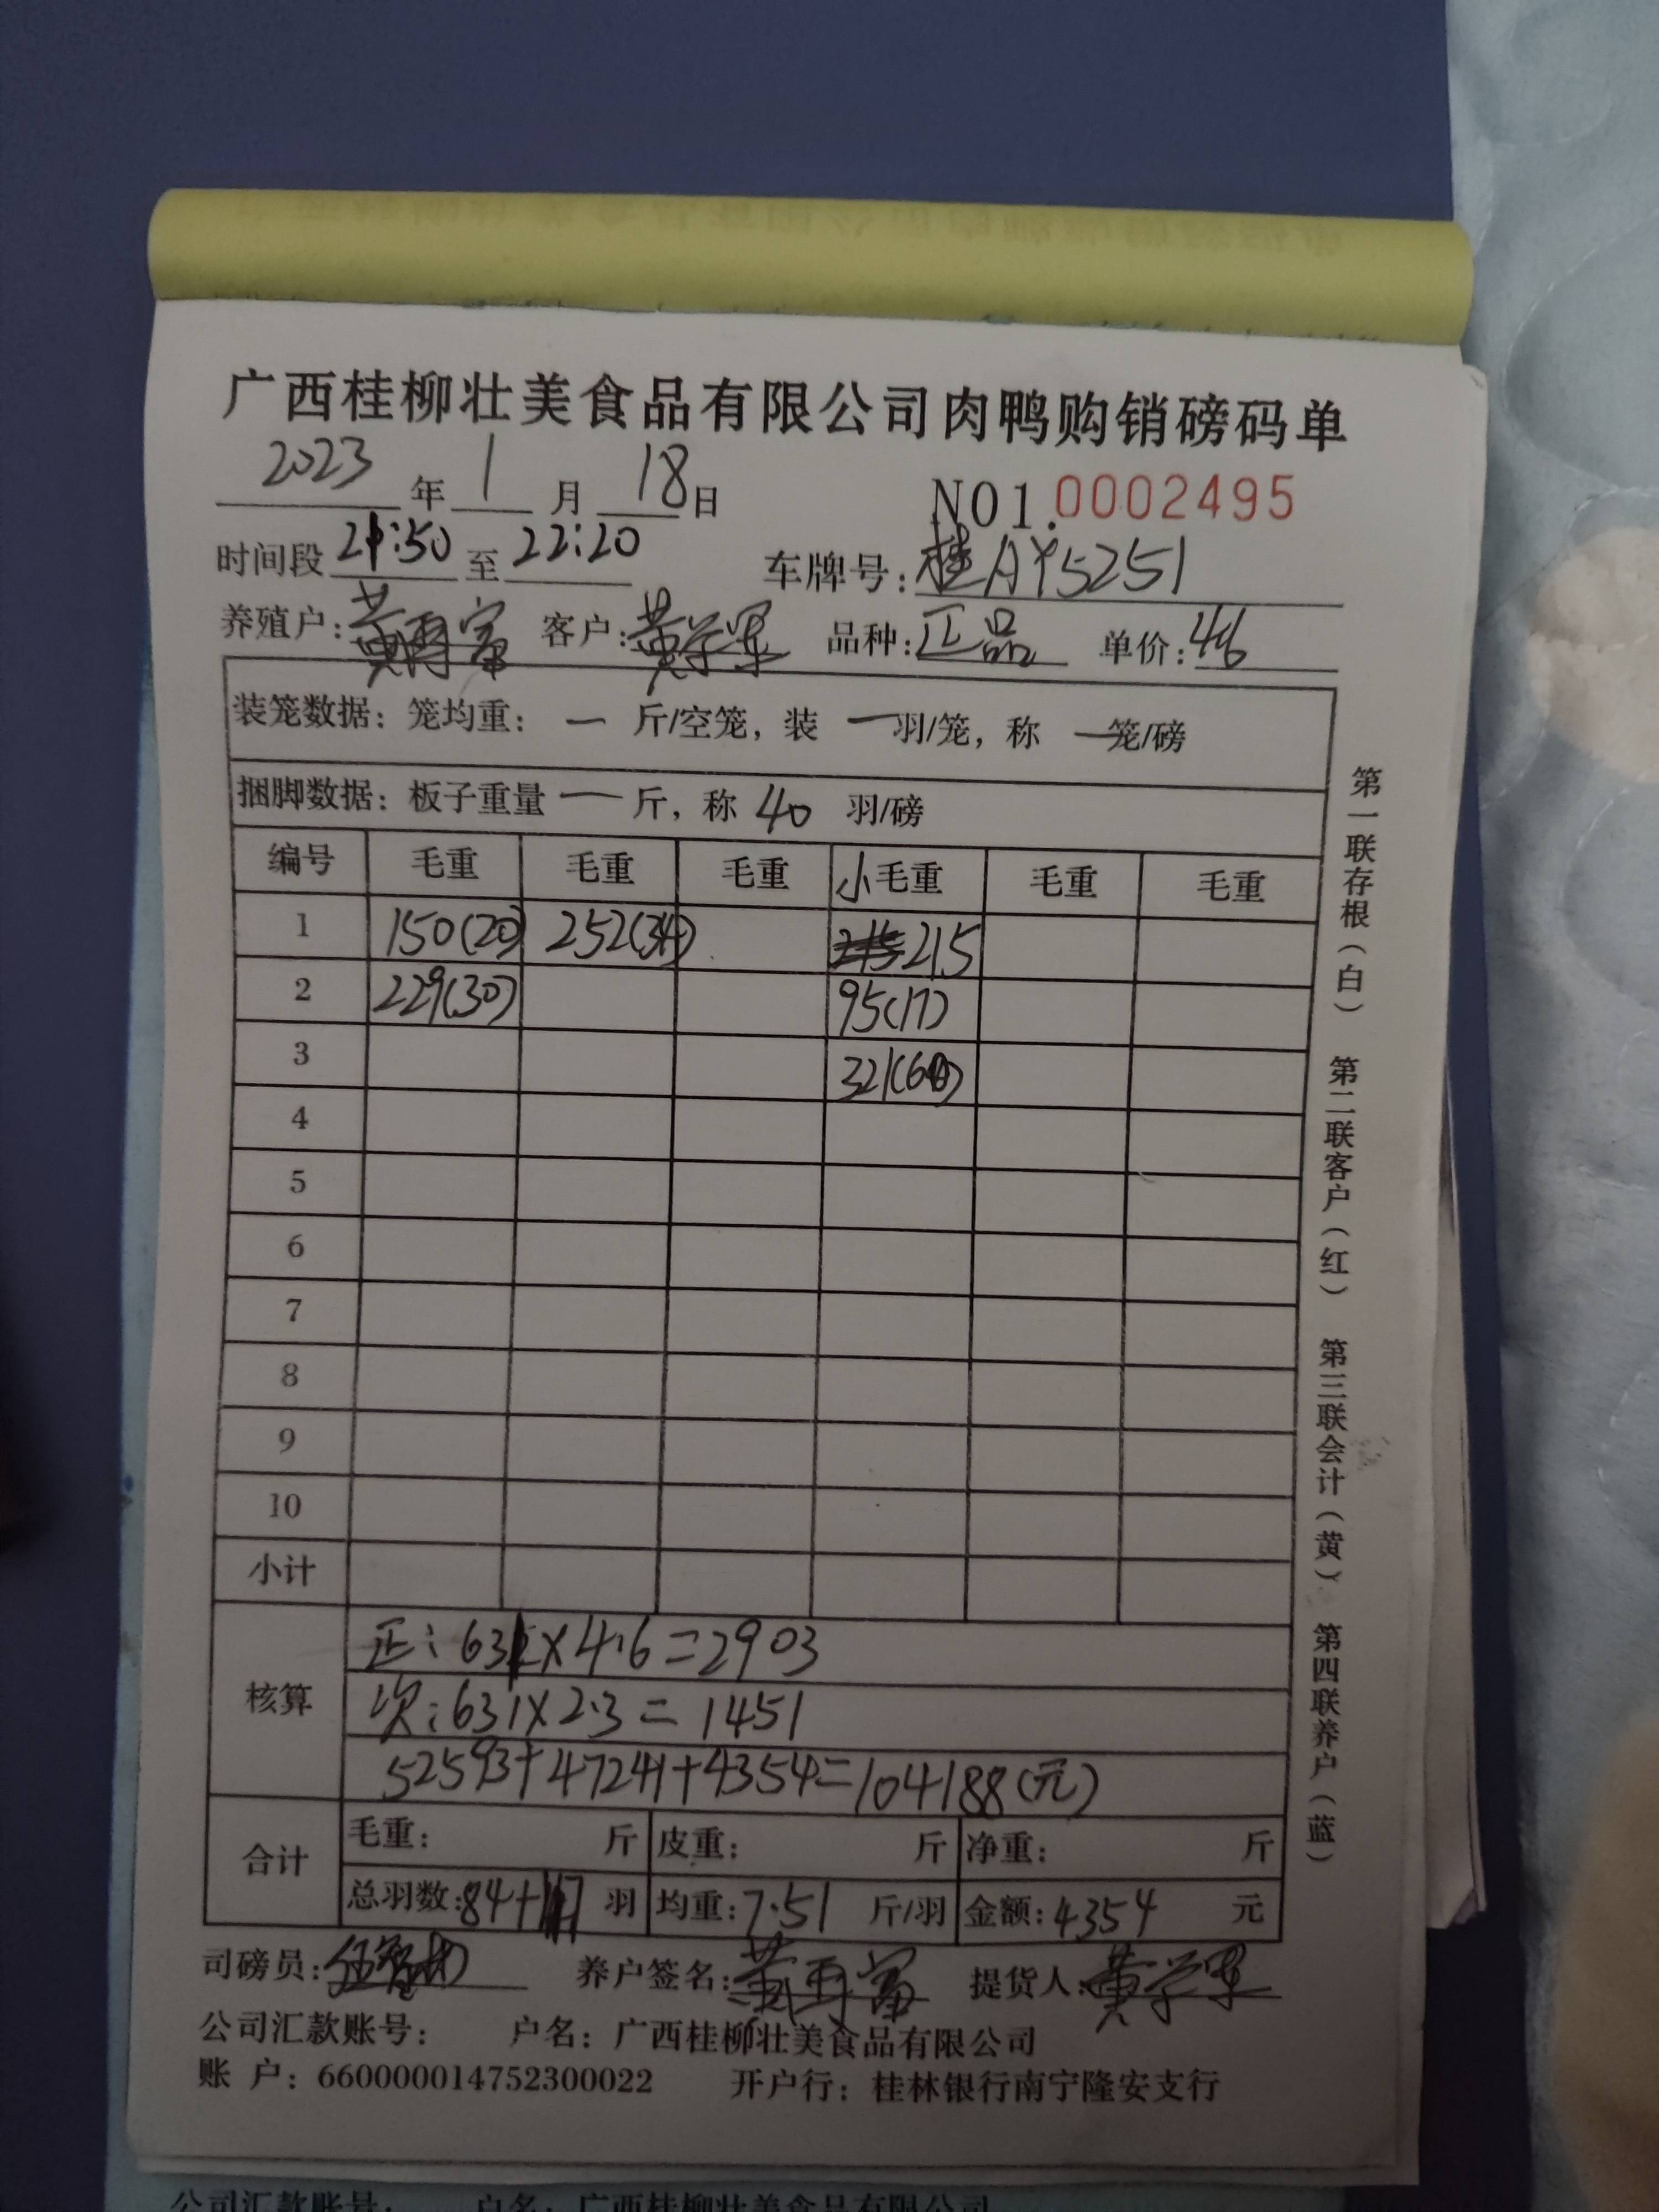 广西桂柳壮美食品有限公司肉鸭购销磅码单
2023 年 1 月 18 日 NO1.0002495
时间段 21:50 至 22:20 车牌号:桂AY5251
养殖户:黄再富 客户:黄学军 品种:正品 单价:4.6
装笼数据:笼均重: — 斤/空笼,装 — 羽/笼,称 — 笼/磅
捆脚数据:板子重量 — 斤,称 40 羽/磅
编号 毛重 毛重 毛重 小毛重 毛重 毛重
1 150(20) 252(34) 215
2 229(30) 95(17)
3 321(60)
4
5
6
7
8
9
10
小计
核算
正:631×4.6=2903
次:631×2.3=1451
52593+47241+4354=104188(元)
合计
毛重: 斤 皮重: 斤 净重: 斤
总羽数:84+117 羽 均重:7.51 斤/羽 金额:4354 元
司磅员: 养户签名:黄再富 提货人:黄学军
公司汇款账号: 户名:广西桂柳壮美食品有限公司
账 户:660000014752300022 开户行:桂林银行南宁隆安支行
第一联存根(白) 第二联客户(红) 第三联会计(黄) 第四联养户(蓝)
公司汇款账号: 户名:广西桂柳壮美食品有限公司